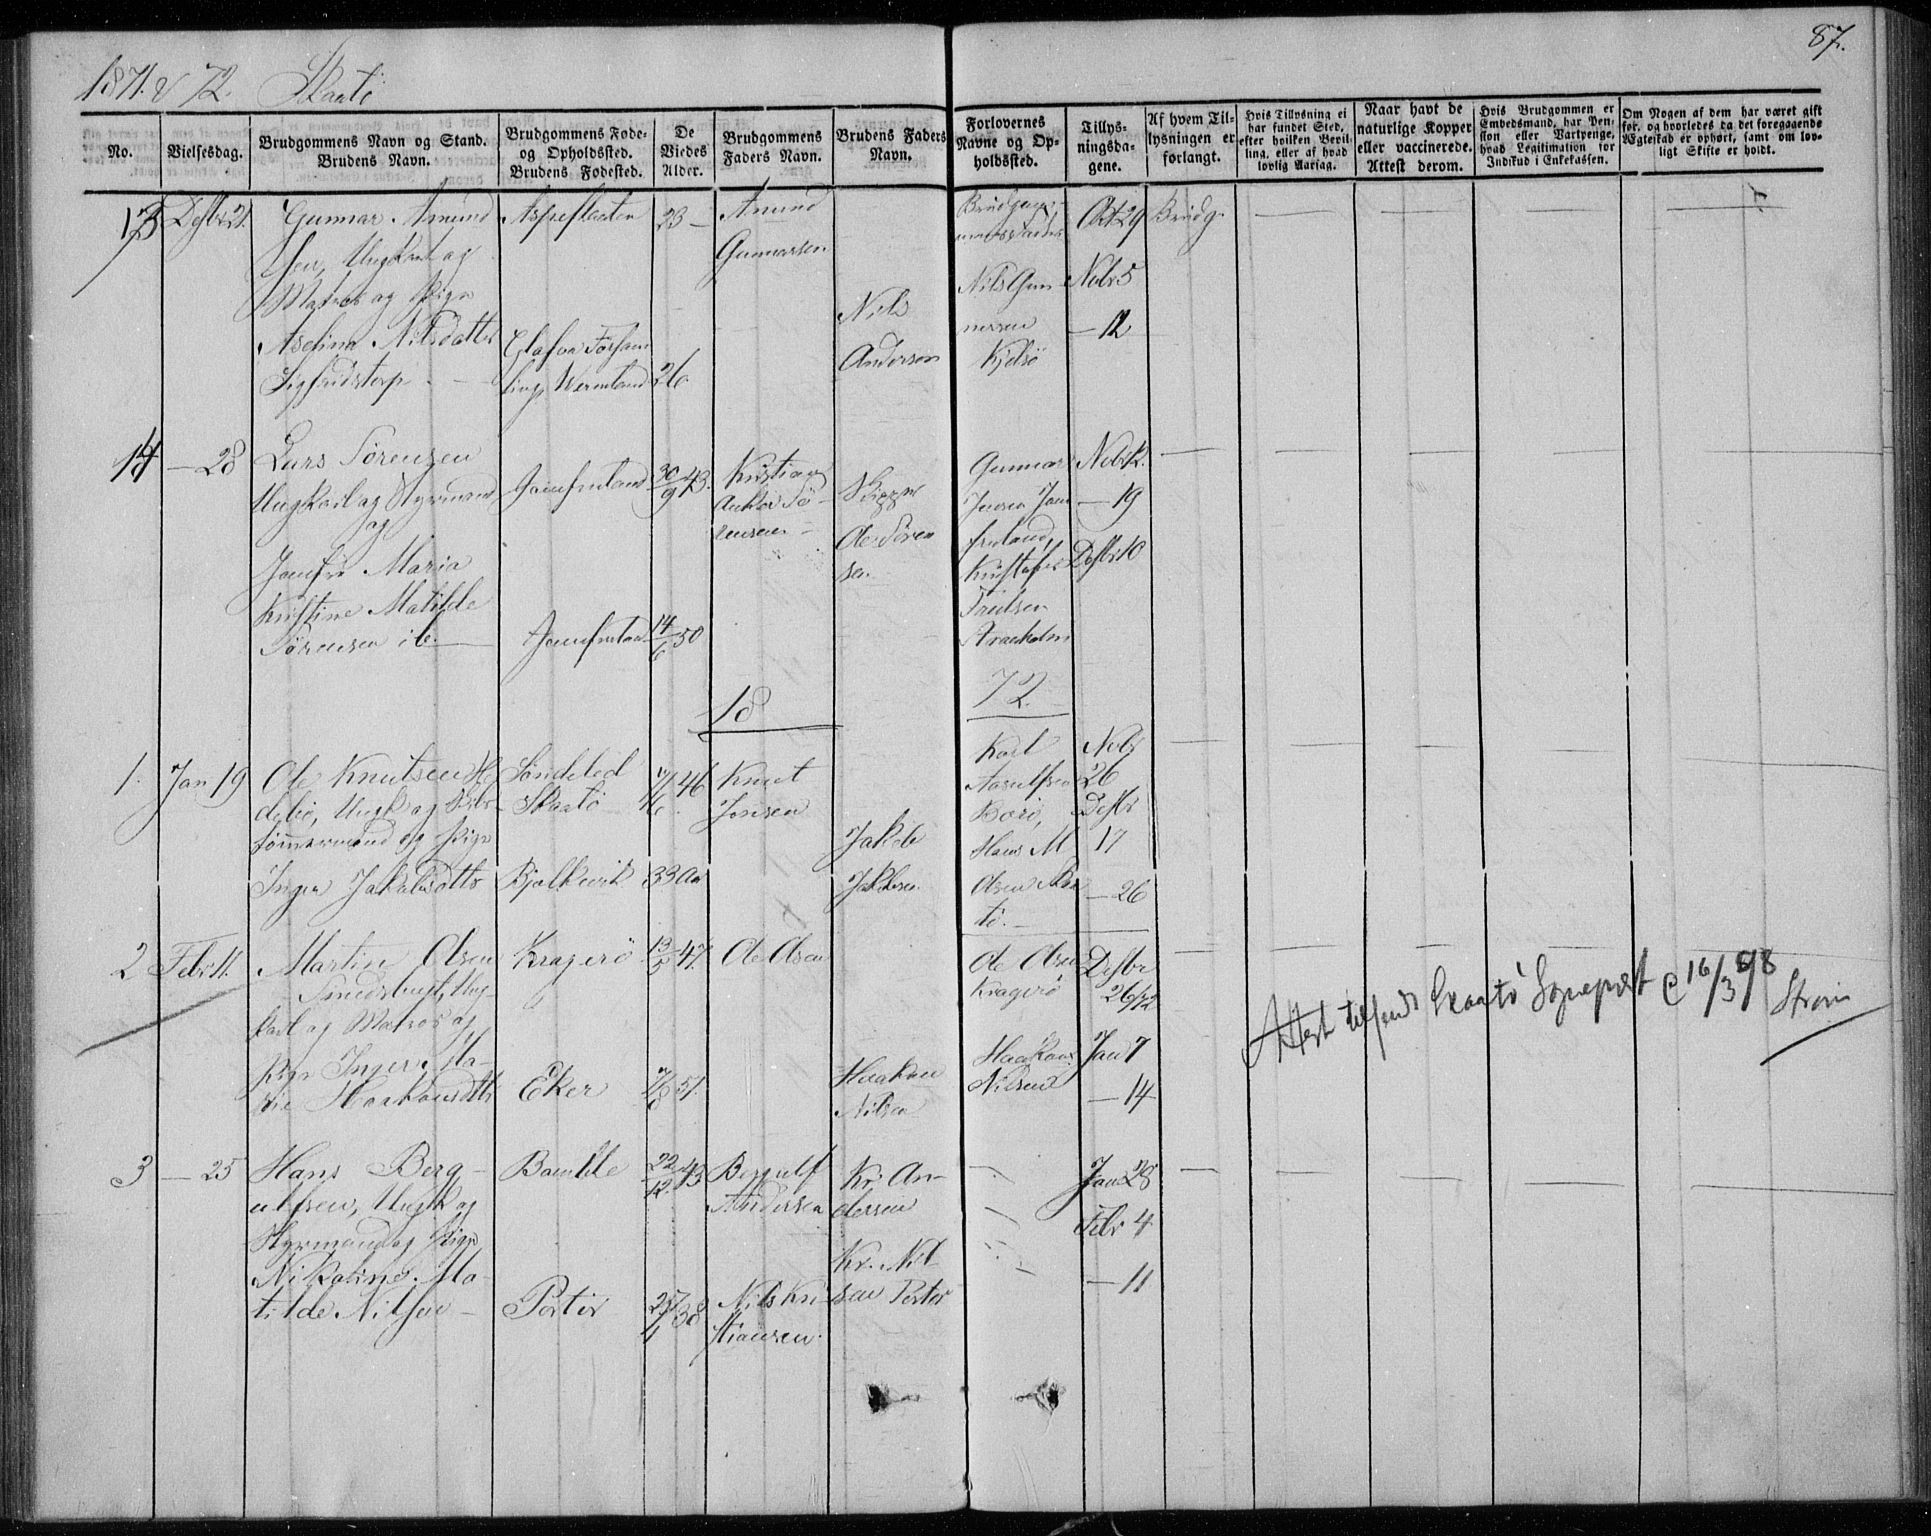 87.
1871 & 72. Skaatö
No.
Vielsesdag.
Brudgommens Navn og Stand.
Brudens Navn.
Brudgommens Føde-
og Opholdssted.
Brudens Fødested.
De
Viedes
Alder.
Brudgommens
Faders Navn.
Brudens Faders
Navn.
Forlovernes
Navne og Op-
holdssted.
Tillys-
ningsda-
gene.
Af hvem Til-
lysningen er
forlangt.
Hvis Tillysning ei
har fundet Sted,
efter hvilken Bevil-
ling, eller af hvad
lovlig Aarsag.
Naar havt de
naturlige Kopper
eller vaccinerede.
Attest derom.
Hvis Brudgommen er
Embedsmand, har Pen-
sion eller Vartpenge,
hvad Legitimation for
Indskud i Enkekassen.
Om Nogen af dem har været gift
før, og hvorledes da det foregaaende
Ægteskab er ophørt, samt om lov-
ligt Skifte er holdt.
13 Desbr 21. Gunnar Amund
sen, Ungkarl og
Matros og Pige
Aselina Nilsdatter
Sigfridstorp
Glafva Forsam
ling, Wermland
23
26
Amund
Gunnarsen
Nils
Anderson
Brudgom-
mens Fader
Nils Gun
nersen
Kjelsö
Okt 29
Nvbr 5
— 12
Brudg.
14 — 28 Lars Sörensen
Ungkarl og Styrmand
og
Jomfru Maria
Kristine Matilde
Sörensen ib.
Jomfruland
Jomfruland
30/9 43.
14/6 50
Kristian
Anker Sö
rensen
Skipper
Ole Sören
sen.
Gunnar
Jensen Jom
fruland,
Kristofer
Troelsen
Nvbr 12.
— 19
Desbr 10
18 72.
1. Jan 19 Ole Knutsen He
debö, Ungk og
Tømmermand og Pige
Inger Jakobsdatter
Söndeled
Skaatö
46
33 Aar
Knut
Jensen
Jakob
Jakobsen
Karl
Aanulfsen
Borö,
Hans M
Olsen Skaa
tö.
Nvbr
26
Desbr
17
— 26
2 Febr 11. Martin Olsen
Smedsbugt, Ung-
karl og Matros og
Pige Inger Ma-
rie Haakonsdtr
Kragerö
Eker
13/5 47.
7/8 51.
Ole Olsen
Haakon
Nilsen
Ole Olsen
Kragerö
Haakon
Nilsen
Desbr
26/72
Jan 7
— 14
Attest tilsendt Skaatö Sognepræst d 16/3 98
Strøm
3 — 25 Hans Berg-
ulfsen, Ungk og
Styrmand og Pige
Nikoline Ma-
tilde Nilsen
Bamble
Portör
22/12 43
25/4 38
Bergulf
Andersen
Nils Kri
stiansen.
Kr. An-
dersen
Kr. Nil
sen Portör
Jan 28
Febr 4
— 11